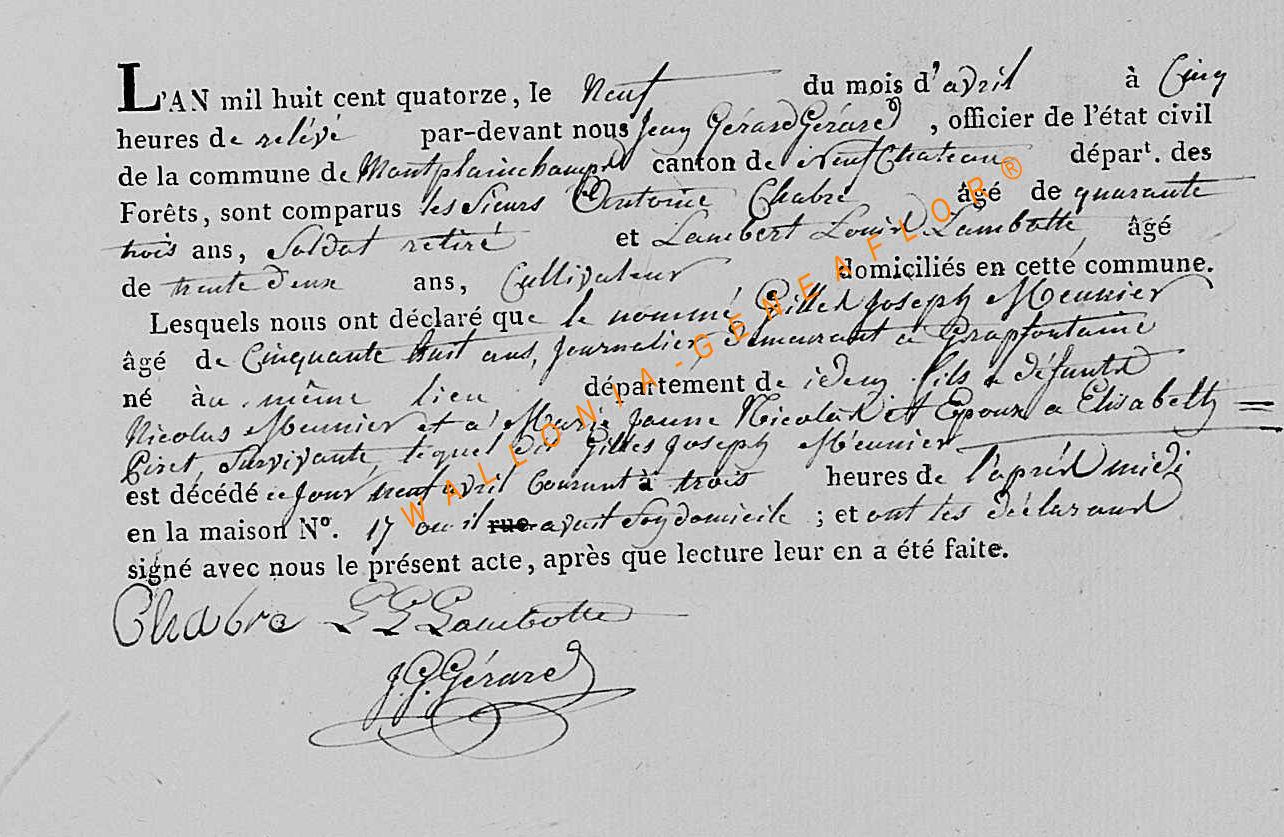 L'AN mil huit cent quatorze, le Neuf du mois d'avril à Cinq
heures de relévé par-devant nous Jean Gérard Gérard, officier de l'état civil
de la commune de Montplainchamps canton de Neufchateau dépar^t. des
Forêts, sont comparus les Sieurs Antoine Chabre âgé de quarante
trois ans, Soldat retiré et Lambert Louis Lambotte, âgé
de trente deux ans, Cultivateur domiciliés en cette commune.
Lesquels nous ont déclaré que le nommé Gilles Joseph Meunier
âgé de Cinquante huit ans, Journalier, demeurant a Grapfontaine
né àu même lieu département de idem fils a défunts
Nicolas Meunier et a Marie Jeanne Nicolas et Epoux a Elisabeth
Piret, Survivante, lequel dit Gilles Joseph Meunier
est décédé ce Jour neuf avril Courant à trois heures de l'après midi
en la maison N°. 17 ou il rue avait son domicile ; et ont les déclarans
signé avec nous le présent acte, après que lecture leur en a été faite.
Chabre L L Lambotte
J. G. Gérard
WALLONIA-GENEAFLOR®